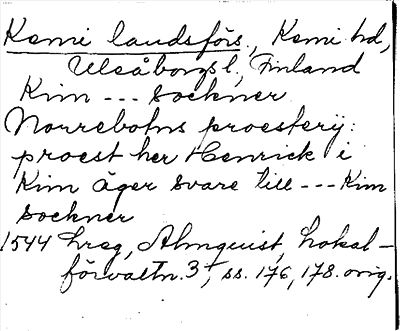 Kemi landsförs., Kemi hd,
Uleåborgs l, Finland
Kim --- sockner
Norrebotns proesterij:
proest her Henrick i
Kim äger svare till --- Kim
sockner
1544 hreg, Almquist, Lokal-
förvaltn. 3, ss. 176, 178. orig.